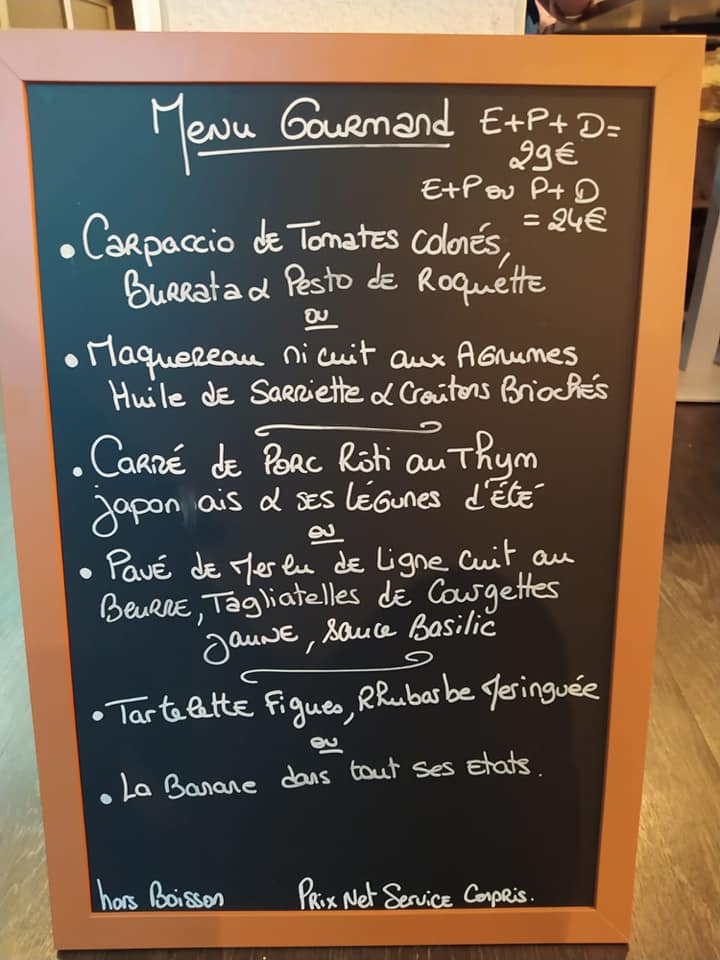 Menu Gourmand E+P+D=
29€
E+P ou P+D
= 24€
• Carpaccio de Tomates colorés,
Burrata & Pesto de Roquette
ou
• Maquereau mi cuit aux Agrumes
Huile de Sarriette & Croûtons Briochés
• Carré de Porc Rôti au Thym
japonais & ses légunes d'été
ou
• Pavé de Merlu de Ligne cuit au
Beurre, Tagliatelles de Courgettes
jaune, sauce Basilic
• Tartelette Figues, Rhubarbe Meringuée
ou
• La Banane dans tout ses Etats.
hors Boisson Prix Net Service Compris.